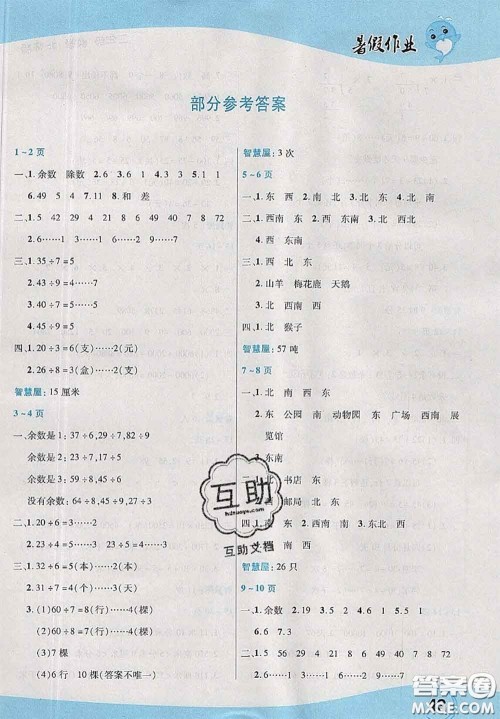 暑假作业
部分参考答案
1~2页
一、1.余数 除数 2.6 3.6 1 4.3 5.1 1
6.49 5 4 7.11 8.和 差
二、1.5 42 24 29 4 71 49 40 7 8 72
2.6……1 8……1 6……1 9……7
三、1.35÷7=5
2.42÷9=4……7
3.45÷7=6……3
四、1.20÷3=6(支)……2(元)
2.26÷3=8(盒)……2(支)
智慧屋:15厘米
3~4页
一、余数是1:37÷6,29÷7,82÷9
余数是3:27÷8,39÷4,17÷7
没有余数:64÷8,45÷9,63÷9
二、1.60÷8=7(个)……4(元)
2.32÷6=5(本)……2(元)
3.31÷7=4(个)……3(天)
三、1.(1)60÷7=8(行)……4(棵)
(2)60÷8=7(行)……4(棵)
(3)7棵
(4)6行 10棵(答案不唯一)
智慧屋:3次
5~6页
一、1.东 西 2.南 北 3.北 4.北 南
二、1.西南 东 2.东 3.东南 4.北 西北
5.西南 东北
三、1.西 北 东
2.山羊 梅花鹿 天鹅
3.北 西南 西
四、1.北 猴子
智慧屋:57吨
7~8页
一、1.北 南 西 东
2.东 公园 南 动物园 东 广场 西南 展
览馆
3.东南
1.北 书店 东 北
邮局 北 东
四、1.东 2.东北 3.西 4.东 5.北
南 西
智慧屋:26只
9~10页
一、1.余数 2.6 4 3.5 1 5.5 1
6.2
二、1.5 42 24 29 4 71 49 40 7 8 72
互助
互助文档
答案圈
MXQE.COM